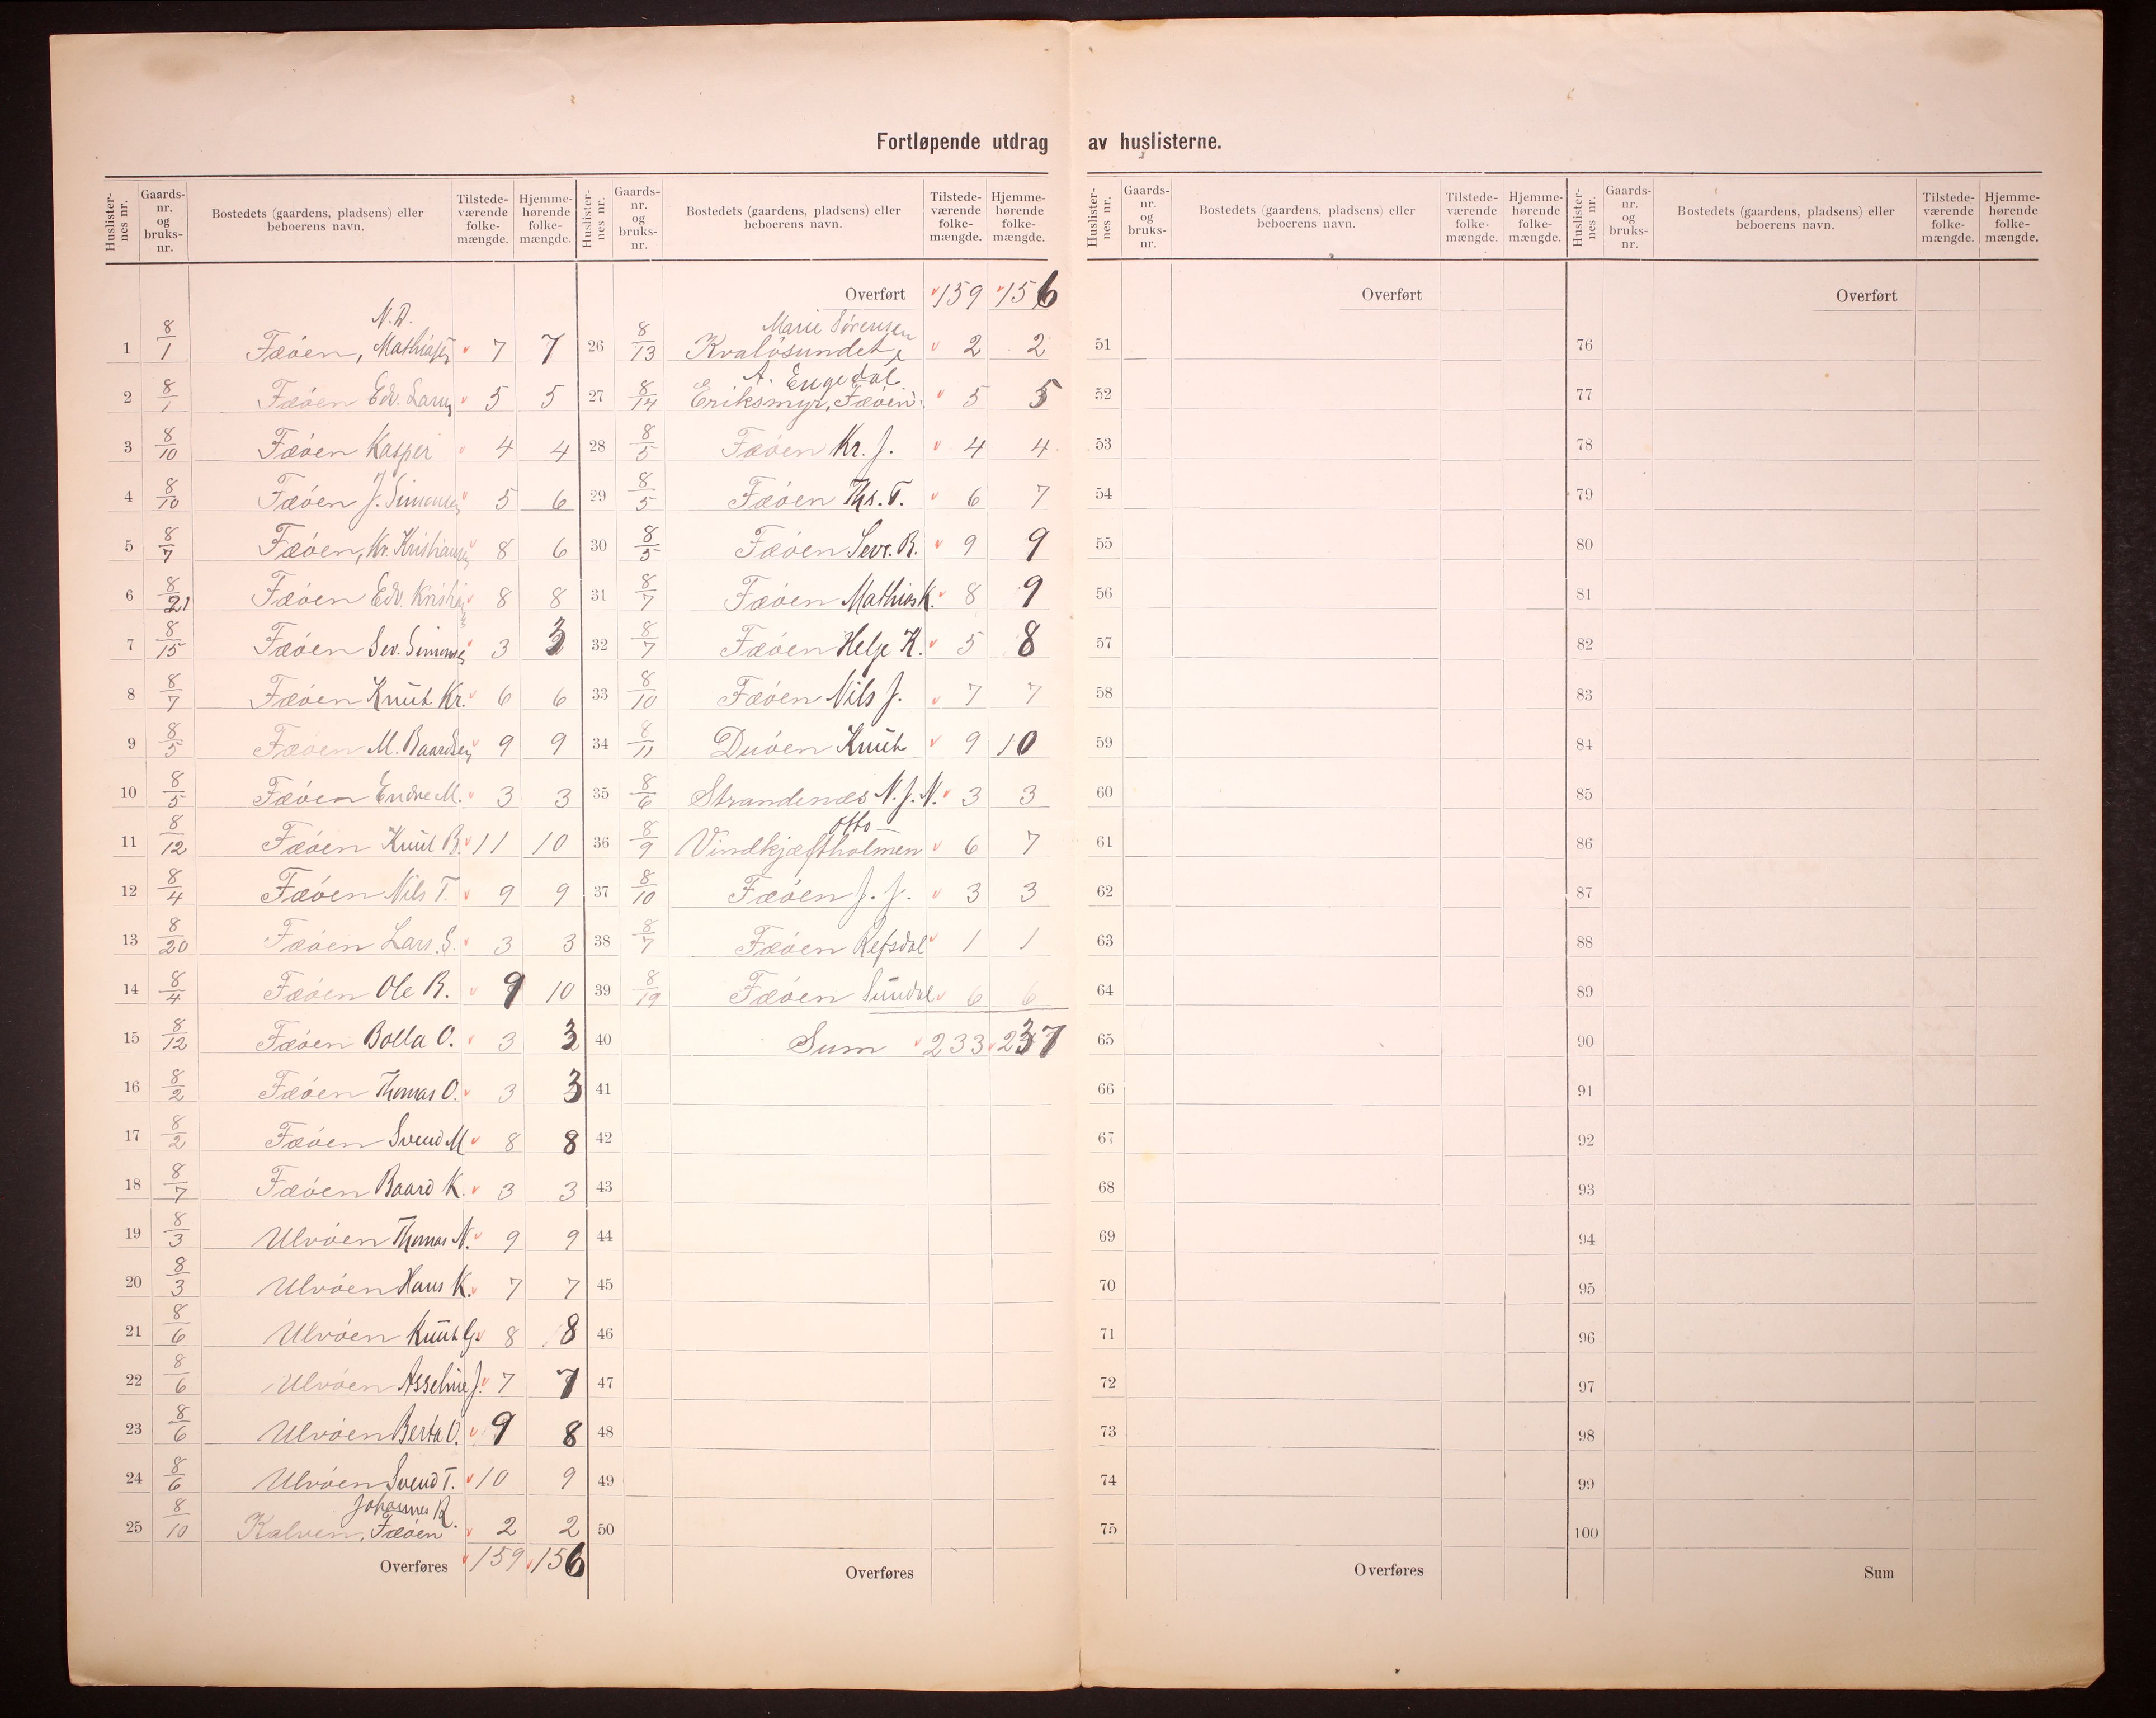 Fortløpende utdrag av huslisterne.
Huslisternes nr. Gaards-nr. og bruks-nr. Bostedets (gaardens, pladsens) eller beboerens navn. Tilstede-værende folke-mængde. Hjemme-hørende folke-mængde.
1 8/1 Fæøen, N.D. Mathiasen 7 7
2 8/1 Fæøen Edv. Larsen 5 5
3 8/10 Fæøen Kasper 4 4
4 8/10 Fæøen J. Simonsen 5 6
5 8/7 Fæøen, Kr. Kristiansen 8 6
6 8/21 Fæøen Edv. 8 8
7 8/15 Fæøen Sev. Simonsen 3 3
8 8/7 Fæøen Knut Kr. 6 6
9 8/5 Fæøen M. Baardsen 9 9
10 8/5 Fæøen Endre M. 3 3
11 8/12 Fæøen Knut B. 11 10
12 8/4 Fæøen Nils T. 9 9
13 8/20 Fæøen Lars. S. 3 3
14 8/4 Fæøen Ole R. 9 10
15 8/12 Fæøen Bolla O. 3 3
16 8/2 Fæøen Thomas O. 3 3
17 8/2 Fæøen Svend M 8 8
18 8/7 Fæøen Baard K. 3 3
19 8/3 Ulvøen Thomas N. 9 9
20 8/3 Ulvøen Hans K. 7 7
21 8/6 Ulvøen Knut G. 8 8
22 8/6 Ulvøen Asseline J. 7 7
23 8/6 Ulvøen Berta O. 9 8
24 8/6 Ulvøen Svend T. 10 9
25 8/10 Kalven, Fæøen Johannes R. 2 2
Overføres 159 156
Huslisternes nr. Gaards-nr. og bruks-nr. Bostedets (gaardens, pladsens) eller beboerens navn. Tilstede-værende folke-mængde. Hjemme-hørende folke-mængde.
Overført 159 156
26 8/13 Kvaløsundet, Marie Sørensen 2 2
27 8/14 Eriksmyr, Fæøen A. Engedal 5 5
28 8/5 Fæøen Kr. J. 4 4
29 8/5 Fæøen Ths. T. 6 7
30 8/5 Fæøen Sevr. B. 9 9
31 8/7 Fæøen Mathias K. 8 9
32 8/7 Fæøen Helje K. 5 8
33 8/10 Fæøen Nils J. 7 7
34 8/11 Duøen Knut 9 10
35 8/6 Strandenæs N. J. N. 3 3
36 8/9 Vindkjæftholmen Otto 6 7
37 8/10 Fæøen J. J. 3 3
38 8/7 Fæøen Refsdal 1 1
39 8/19 Fæøen Sundal 6 6
40 Sum 233 237
41
42
43
44
45
46
47
48
49
50
Overføres
Huslisternes nr. Gaards-nr. og bruks-nr. Bostedets (gaardens, pladsens) eller beboerens navn. Tilstede-værende folke-mængde. Hjemme-hørende folke-mængde.
Overført
51
52
53
54
55
56
57
58
59
60
61
62
63
64
65
66
67
68
69
70
71
72
73
74
75
Overføres
Huslisternes nr. Gaards-nr. og bruks-nr. Bostedets (gaardens, pladsens) eller beboerens navn. Tilstede-værende folke-mængde. Hjemme-hørende folke-mængde.
Overført
76
77
78
79
80
81
82
83
84
85
86
87
88
89
90
91
92
93
94
95
96
97
98
99
100
Sum